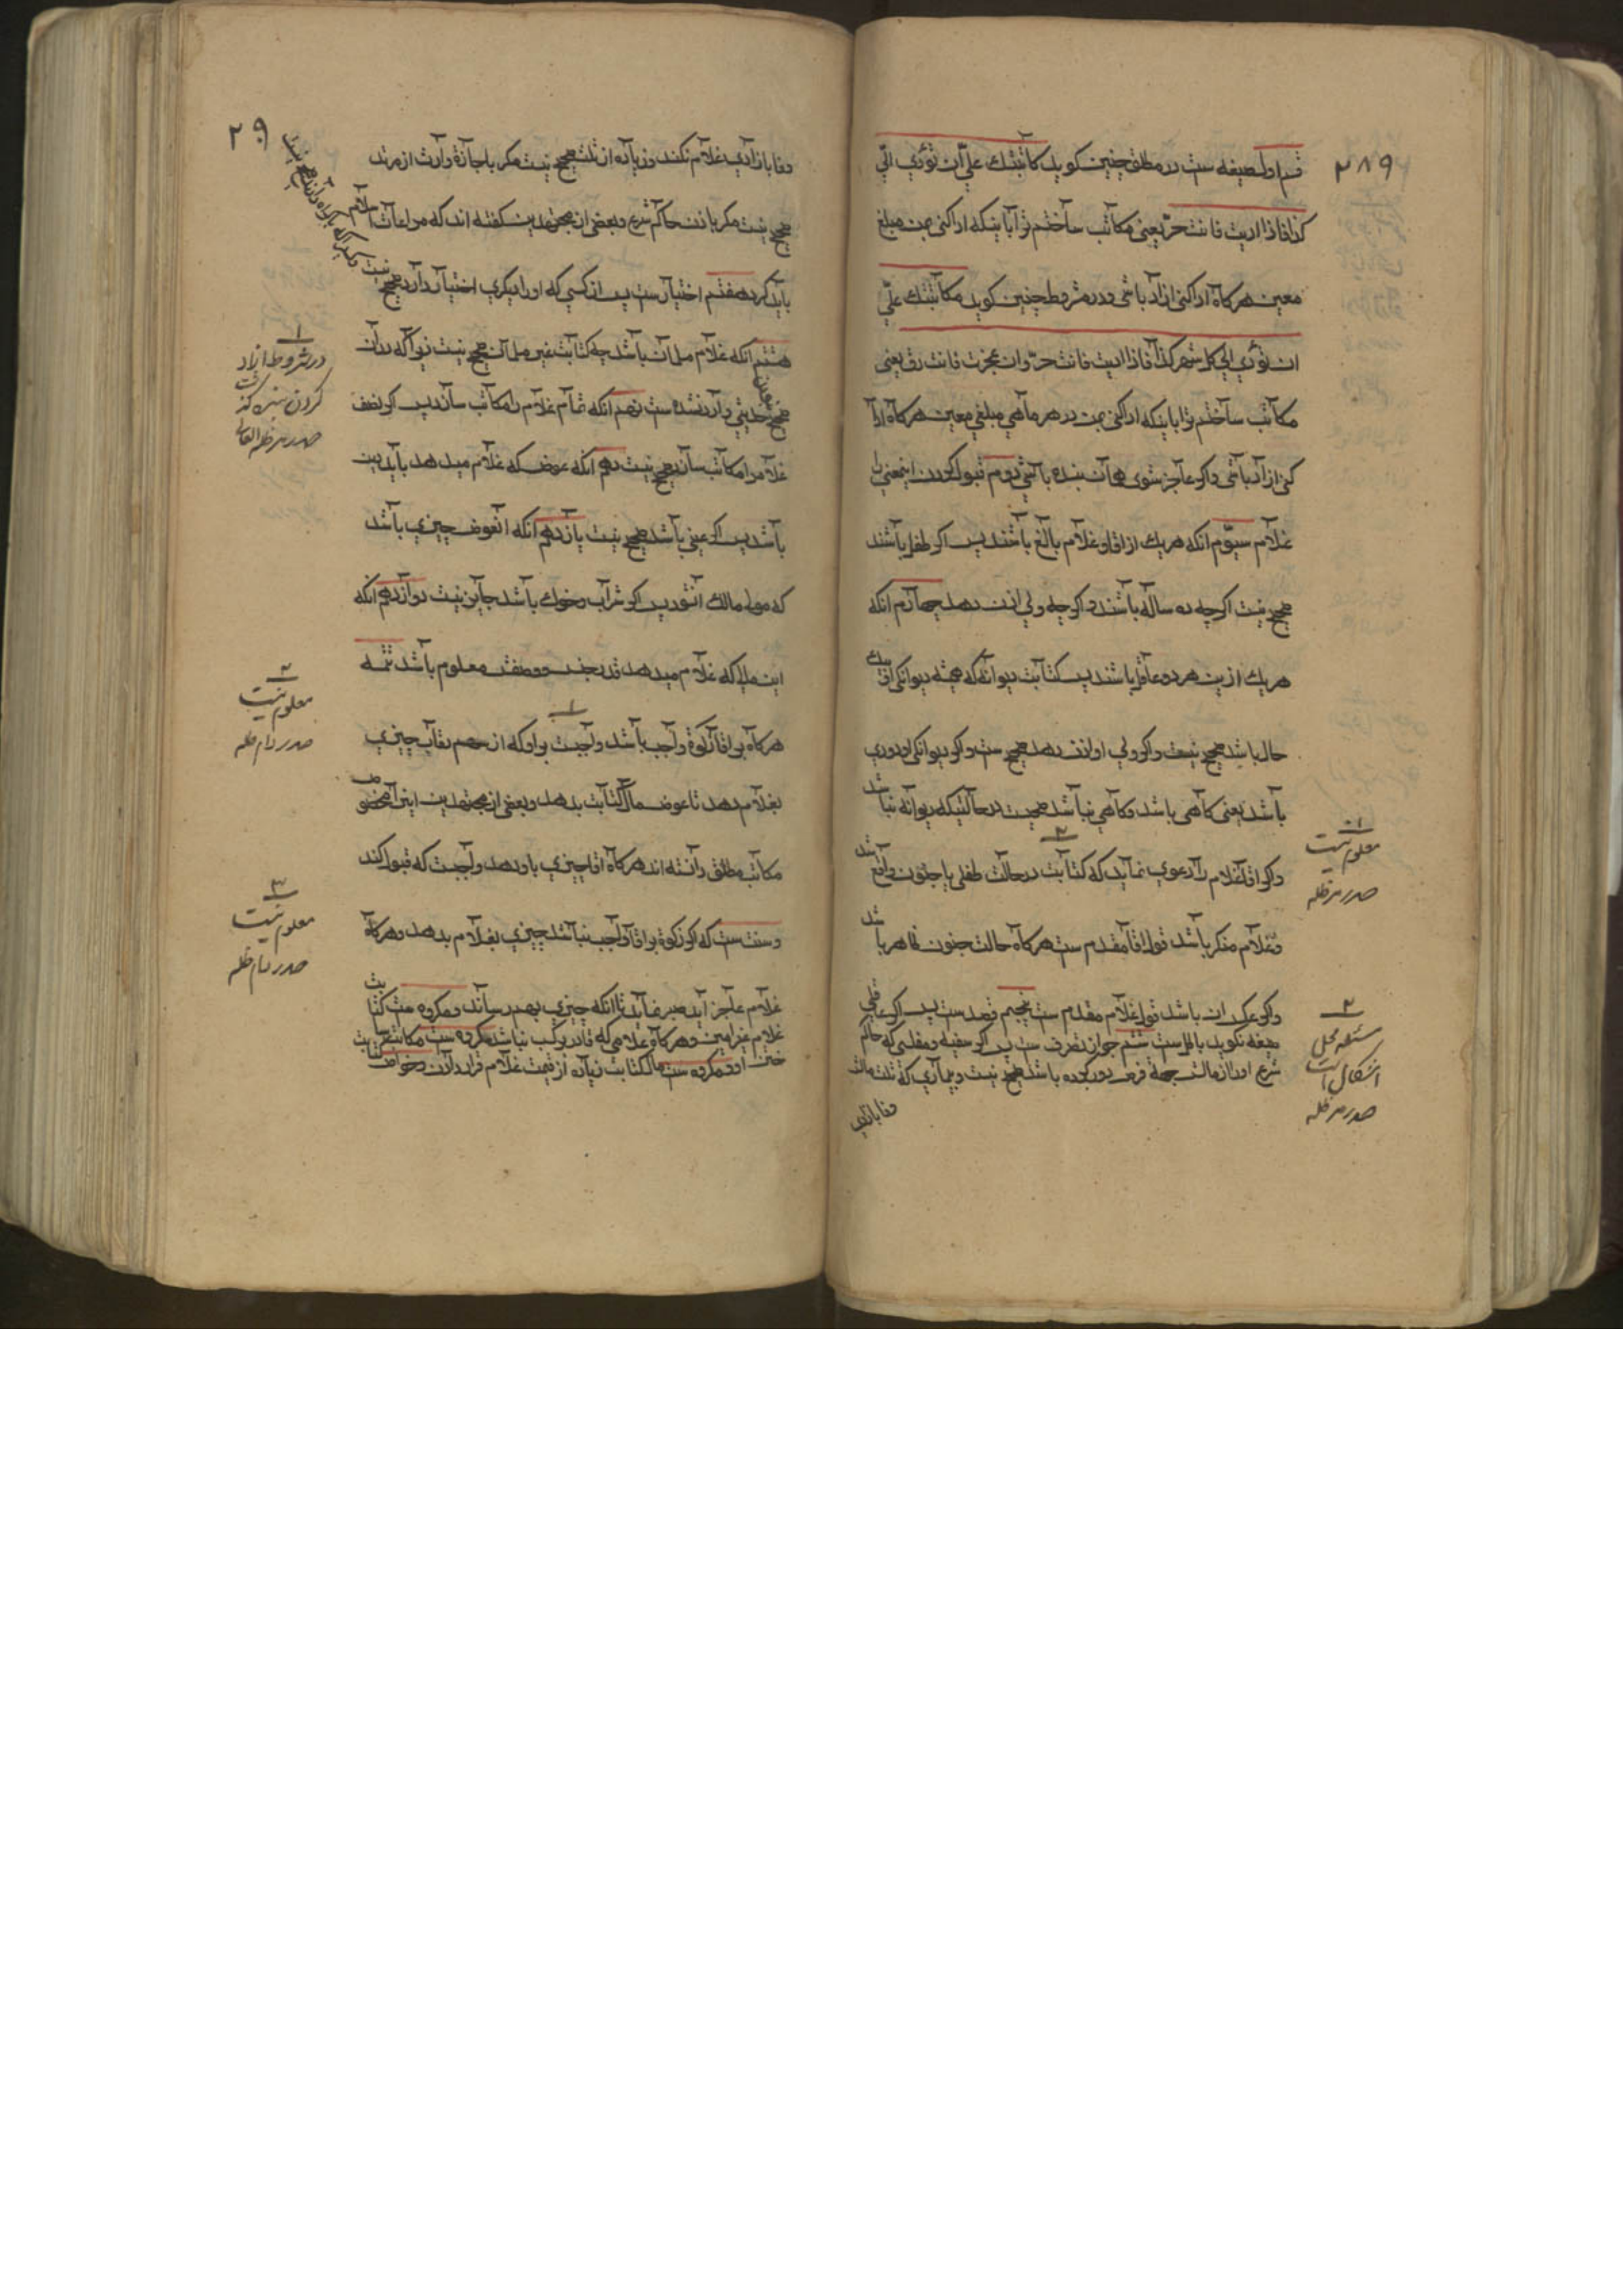 ۲۸۹
قسم اول صیغه ست در مطلق چنین کوید کاتبتك علی ان تؤدی الی
کذا فاذا ادیت فانت حرّ یعنی مکاتب ساختم ترا باینکه اداکنی بمن مبلغ
معین هرکاه اداکنی ازاد باشی و در مشروط چنین کوید مکاتبتك علی
ان تؤدی الی کل شهر کذا فاذا ادیت فانت حرّ و ان عجزت فانت رق یعنی
مکاتب ساختم ترا باینکه اداکنی بمن در هر ماهی مبلغی معین هرکاه ادا
کنی ازاد باشی و اکر عاجز شوی همان بنده باشی دوم قبول کردن اینمعنی را
غلام سیوم انکه هریك از اقا و غلام بالغ باشند پس اکر طفل باشند
صحیح نیست اکرچه ده ساله باشند و اکرچه ولی اذن دهد چهارم انکه
هریك ازین هردو عاقل باشند پس کتابت دیوانه که همیشه دیوانکی او را
حال باشد صحیح نیست و اکر ولی او اذن دهد صحیح ست و اکر دیوانکی او دوری
باشد یعنی کاهی باشد و کاهی نباشد صحیحست در حالتیکه دیوانه نباشد
و اکر اقا غلام را دعوی نماید که کتابت در حالت طفلی یا جنون واقع شد
و غلام منکر باشد قول اقا مقدم ست هرکاه حالت جنون ظاهر باشد
و اکر عکس ان باشد قول غلام مقدم ست پنجم قصد ست پس اکر غافلی
صیغه بکوید باطل ست ششم جواز تصرف ست پس اکر سفیه و مفلسی که حاکم
شرع او را از مالش جهة قرض بدر کرده باشد صحیح نیست و بیماری که ثلث مالش
وفا بازادی
۱
معلوم نیست
صدر مدظله
۲
محل
اشکال است
صدر مدظله
۲۹۰
وفا بازادی غلام نکند در زیاده از ثلث صحیح نیست مکر باجازة وارث از مرتد
صحیح نیست مکر باذن حاکم شرع و بعضی از مجتهدین کفته اند که مراعات اسلام
باید کرد هفتم اختیار ست پس از کسی که او را دیکری اختیار دارد صحیح نیست
هشتم انکه غلام مسلمان باشد چه کتابت غیر مسلمان صحیح نیست زیرا که در ان
صحیح حدیثی وارد نشده ست نهم انکه تمام غلام را مکاتب سازد پس اکر نصف
غلام را مکاتب سازد صحیح نیست دهم انکه عوض که غلام میدهد باید دین
باشد پس اکر عینی باشد صحیح نیست یازدهم انکه انعوض چیزی باشد
که مولی مالك انشود پس اکر شراب و خوك باشد جایز نیست دوازدهم انکه
این مال که غلام میدهد قدر و جنس و وصفش معلوم باشد تتمه
هرکاه بر اقا زکوة واجب باشد واجبست بر او که از سهم رقاب چیزی
بغلام دهد تا عوض مال کتابت بدهد و بعضی از مجتهدین این را مخصوص
مکاتب مطلق دانسته اند هرکاه اقا چیزی باو دهد واجبست که قبول کند
و سنت ست که اکر زکوة بر اقا واجب نباشد چیزی بغلام بدهد و هرکاه
غلام عاجز اید صبر نماید تا انکه چیزی بهم رساند و مکروه ست کتابت
غلام غیر امین و هرکاه غلامی که قادر بر کسب نباشد مکروه ست مکاتب
مکروه ست مال کتابت زیاده از قیمت غلام قرار دادن
۱
در مشروط ازاد
کردن
صدر مدظله العالی
۲
معلوم نیست
صدر دام ظله
۳
معلوم نیست
صدر دام ظله